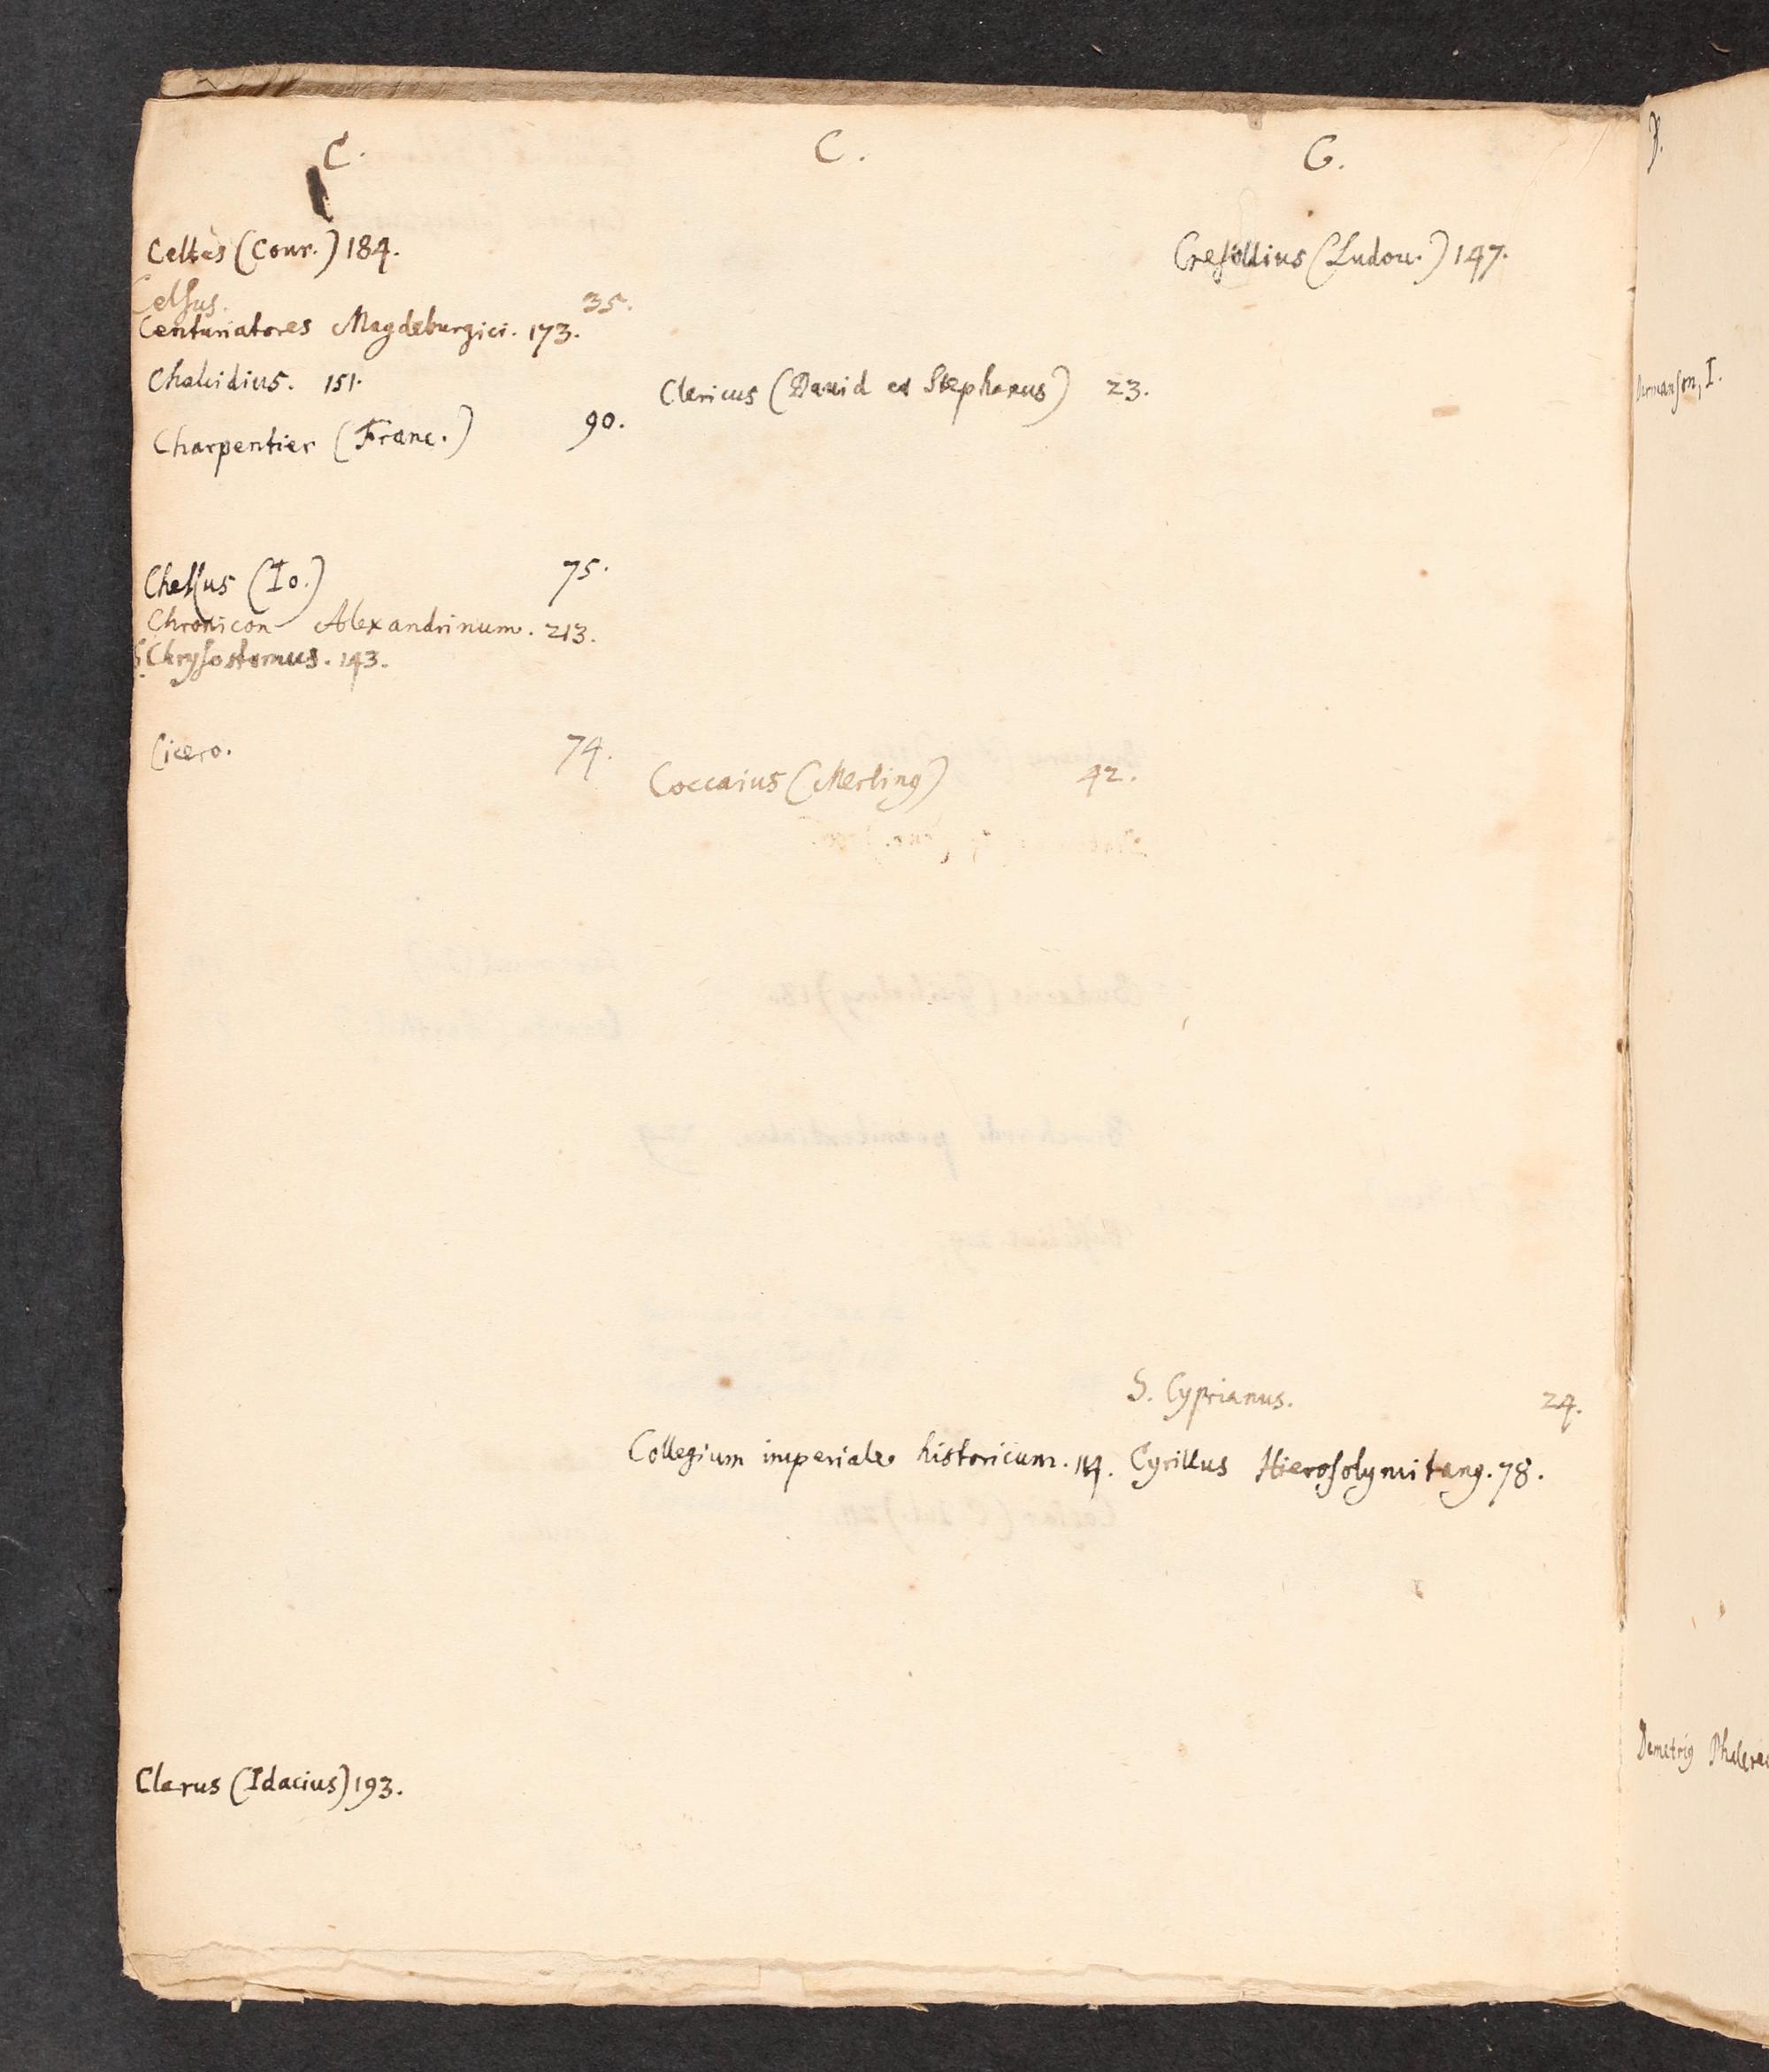 C.
Celtes (Conr.) 184.
Celsus. 35.
Centuriatores Magdeburgici. 173.
Chalcidius. 151.
Charpentier (Franc.) 90.
Chessus (Io.) 75.
Chronicon Alexandrinum. 213.
S. Chrysostomus. 143.
Cicero. 74.
Clarus (Idacius) 193.
C.
Clericus (Dauid et Stephanus) 23.
Coccaius (Merling) 42.
Collegium imperiale historicum. 114.
C.
Cresollius (Ludou.) 147.
S. Cyprianus. 24.
Cyrillus Hierosolymitang. 78.
D.
Demetrig Phalere